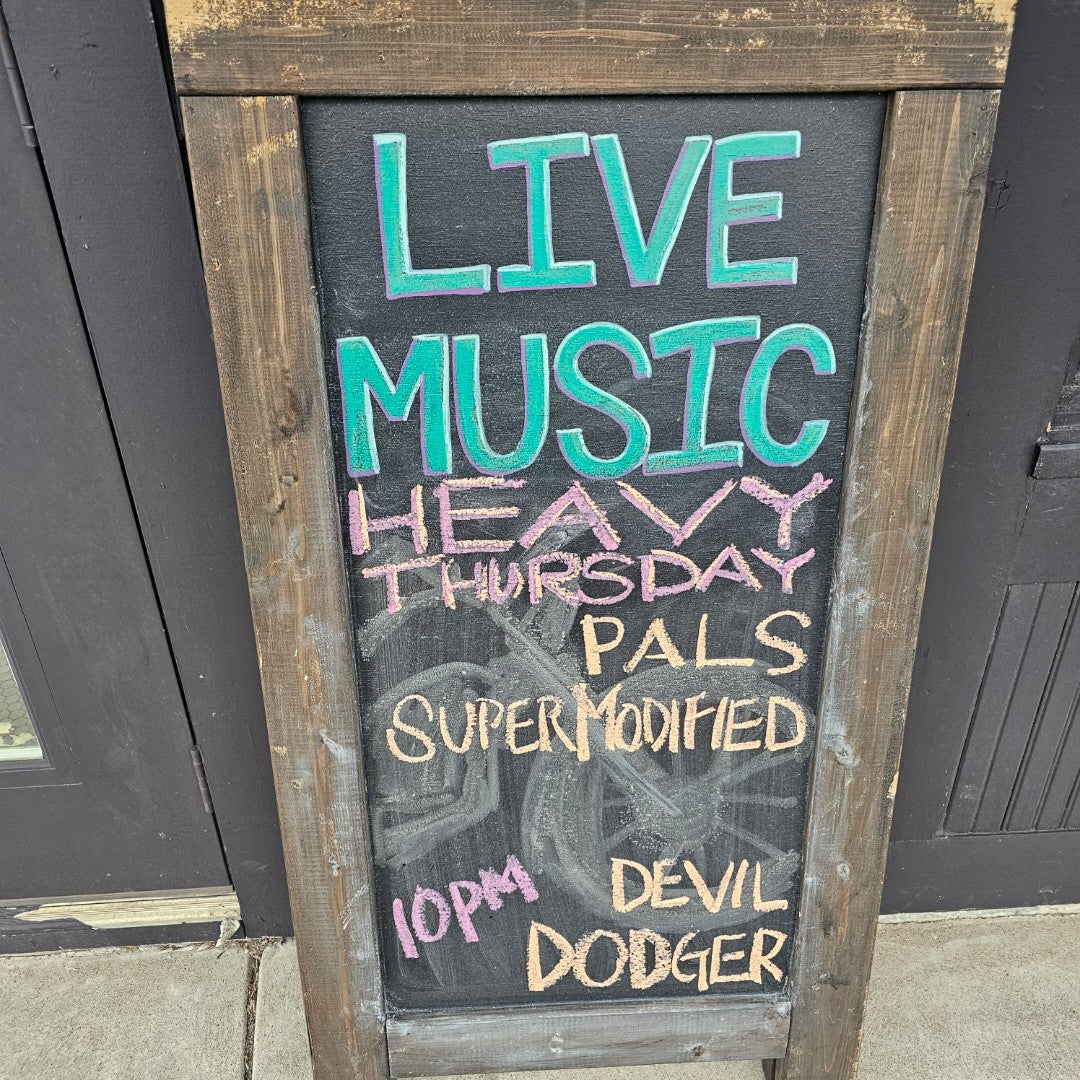 LIVE
MUSIC
HEAVY
THURSDAY
PALS
SUPERMODIFIED
10PM
DEVIL
DODGER